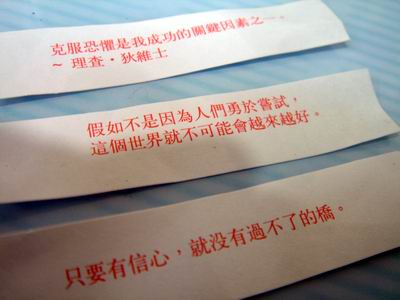 克服恐懼是我成功的關鍵因素之一。
~ 理查·狄維士
假如不是因為人們勇於嘗試，
這個世界就不可能會越來越好。
只要有信心，就没有過不了的橋。